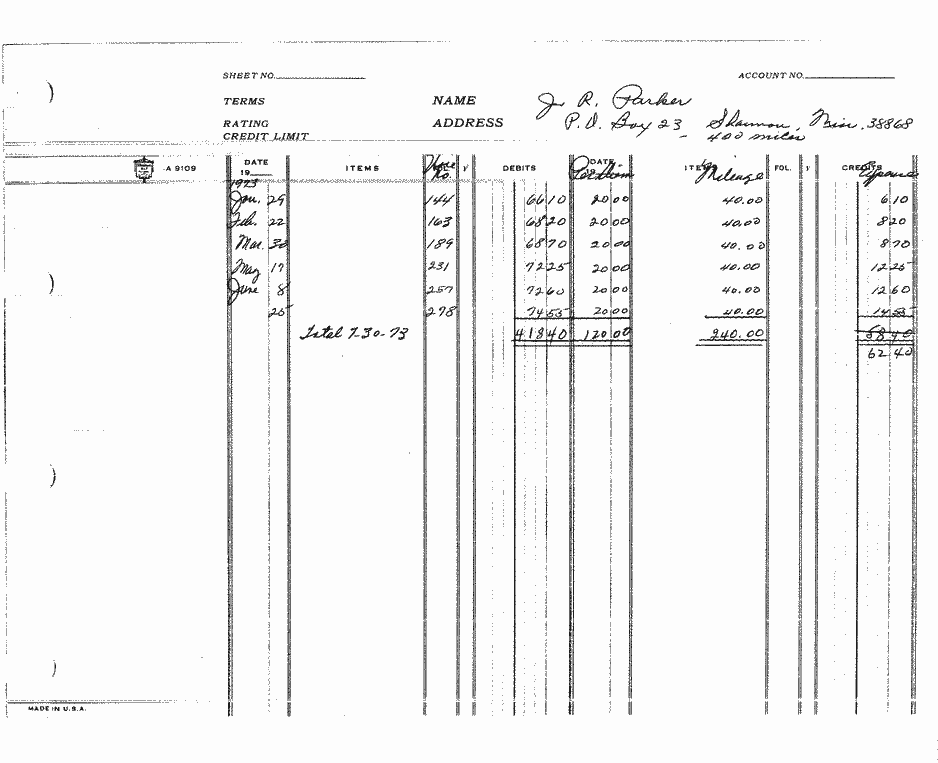 SHEET NO. ACCOUNT NO.
TERMS NAME J. R. Parker
RATING ADDRESS P.O. Box 23 Shannon, Miss. 38868
CREDIT LIMIT 400 miles
A 9109 DATE 19 ITEMS No. DEBITS DATE Per Diem ITEMS Mileage FOL. CREDITS Expense
1973
Jan. 29 144 66 10 20 00 40.00 6 10
Feb. 22 163 68 20 20 00 40.00 8 20
Mar. 30 189 68 70 20 00 40.00 8 70
May 17 231 72 25 20 00 40.00 12 25
June 8 257 72 60 20 00 40.00 12 60
25 278 74 55 20 00 40.00 14 55
Total 7-30-73 418 40 120 00 240.00 58 40
62 40
MADE IN U.S.A.